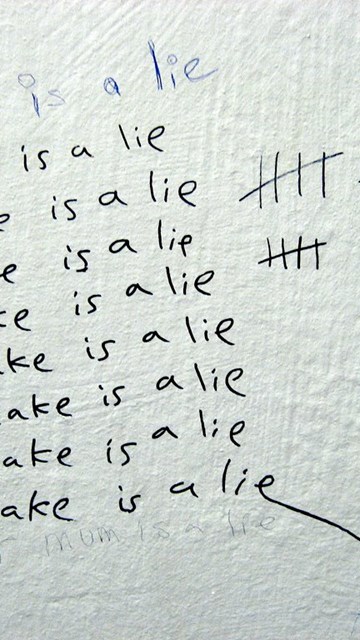 is a lie
is a lie
e is a lie
e is a lie
ke is a lie
ake is a lie
ake is a lie
ake is a lie
ake is a lie
r mum is a lie